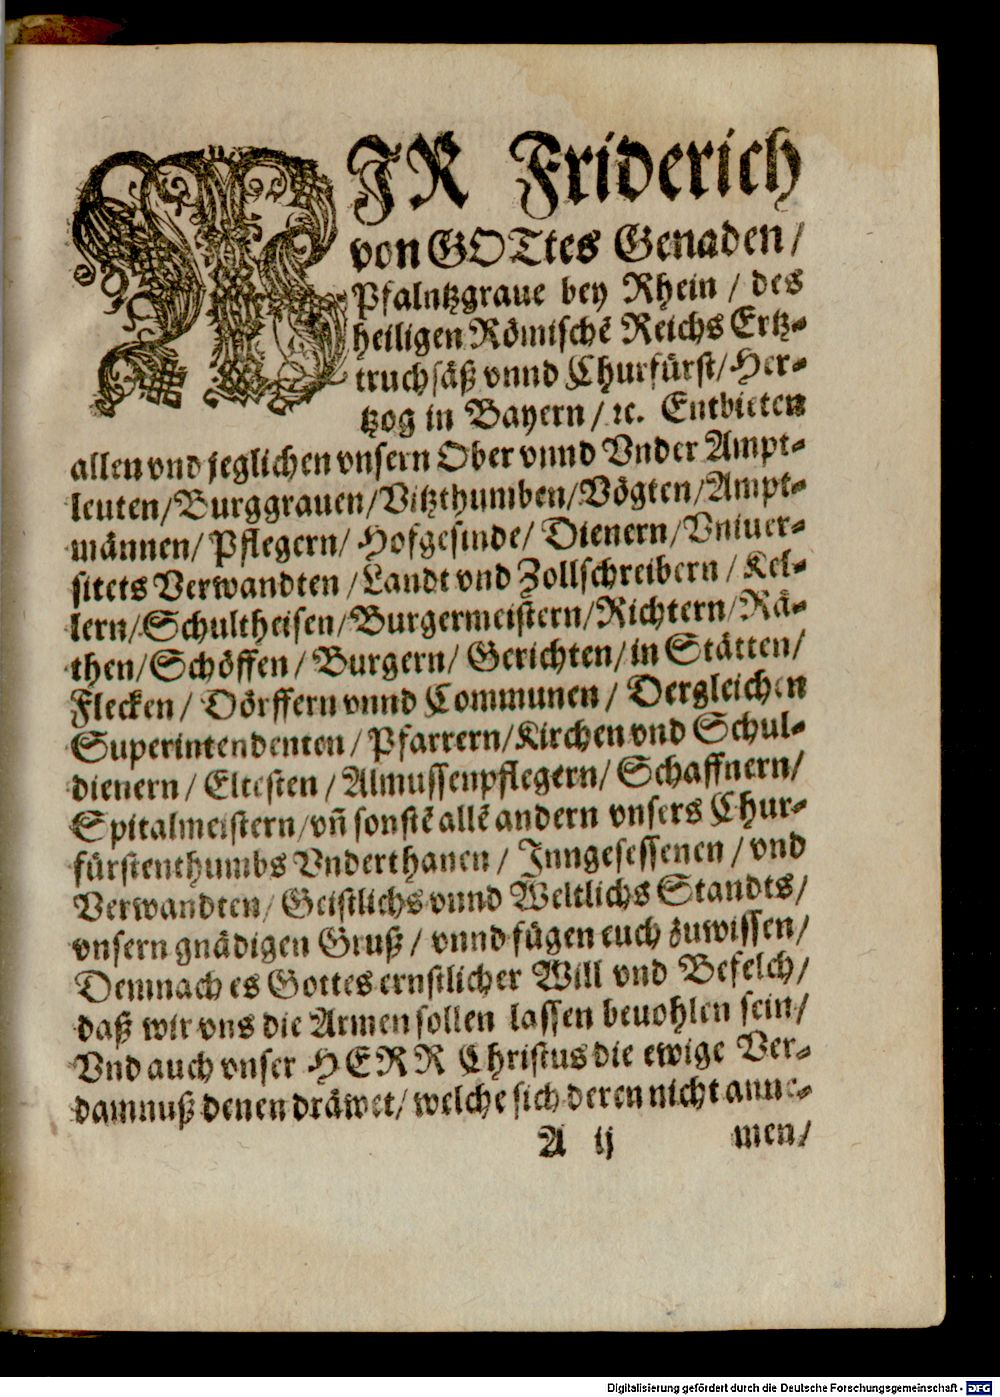 WJR Friderich
von GOTtes Genaden /
Pfalntzgraue bey Rhein / des
heiligen Römischẽ Reichs Ertz-
truchsäß vnnd Churfürst / Her-
tzog in Bayern / ꝛc. Entbieten
allen vnd jeglichen vnsern Ober vnnd Vnder Ampt-
leuten / Burggrauen / Vitzthumben / Vögten / Ampt-
männen / Pflegern / Hofgesinde / Dienern / Vniuer-
sitets Verwandten / Landt vnd Zollschreibern / Kel-
lern / Schultheisen / Burgermeistern / Richtern / Rä-
then / Schöffen / Burgern / Gerichten / in Stätten /
Flecken / Dörffern vnnd Communen / Dergleichen
Superintendenten / Pfarrern / Kirchen vnd Schul-
dienern / Eltesten / Almussenpflegern / Schaffnern /
Spitalmeistern / vñ sonstẽ allẽ andern vnsers Chur-
fürstenthumbs Vnderthanen / Inngesessenen / vnd
Verwandten / Geistlichs vnnd Weltlichs Standts /
vnsern gnädigen Gruß / vnnd fügen euch zuwissen /
Demnach es Gottes ernstlicher Will vnd Befelch /
daß wir vns die Armen sollen lassen beuohlen sein /
Vnd auch vnser HERR Christus die ewige Ver-
damnuß denen dräwet / welche sich deren nicht anne-
A ij men /
Digitalisierung gefördert durch die Deutsche Forschungsgemeinschaft - DFG